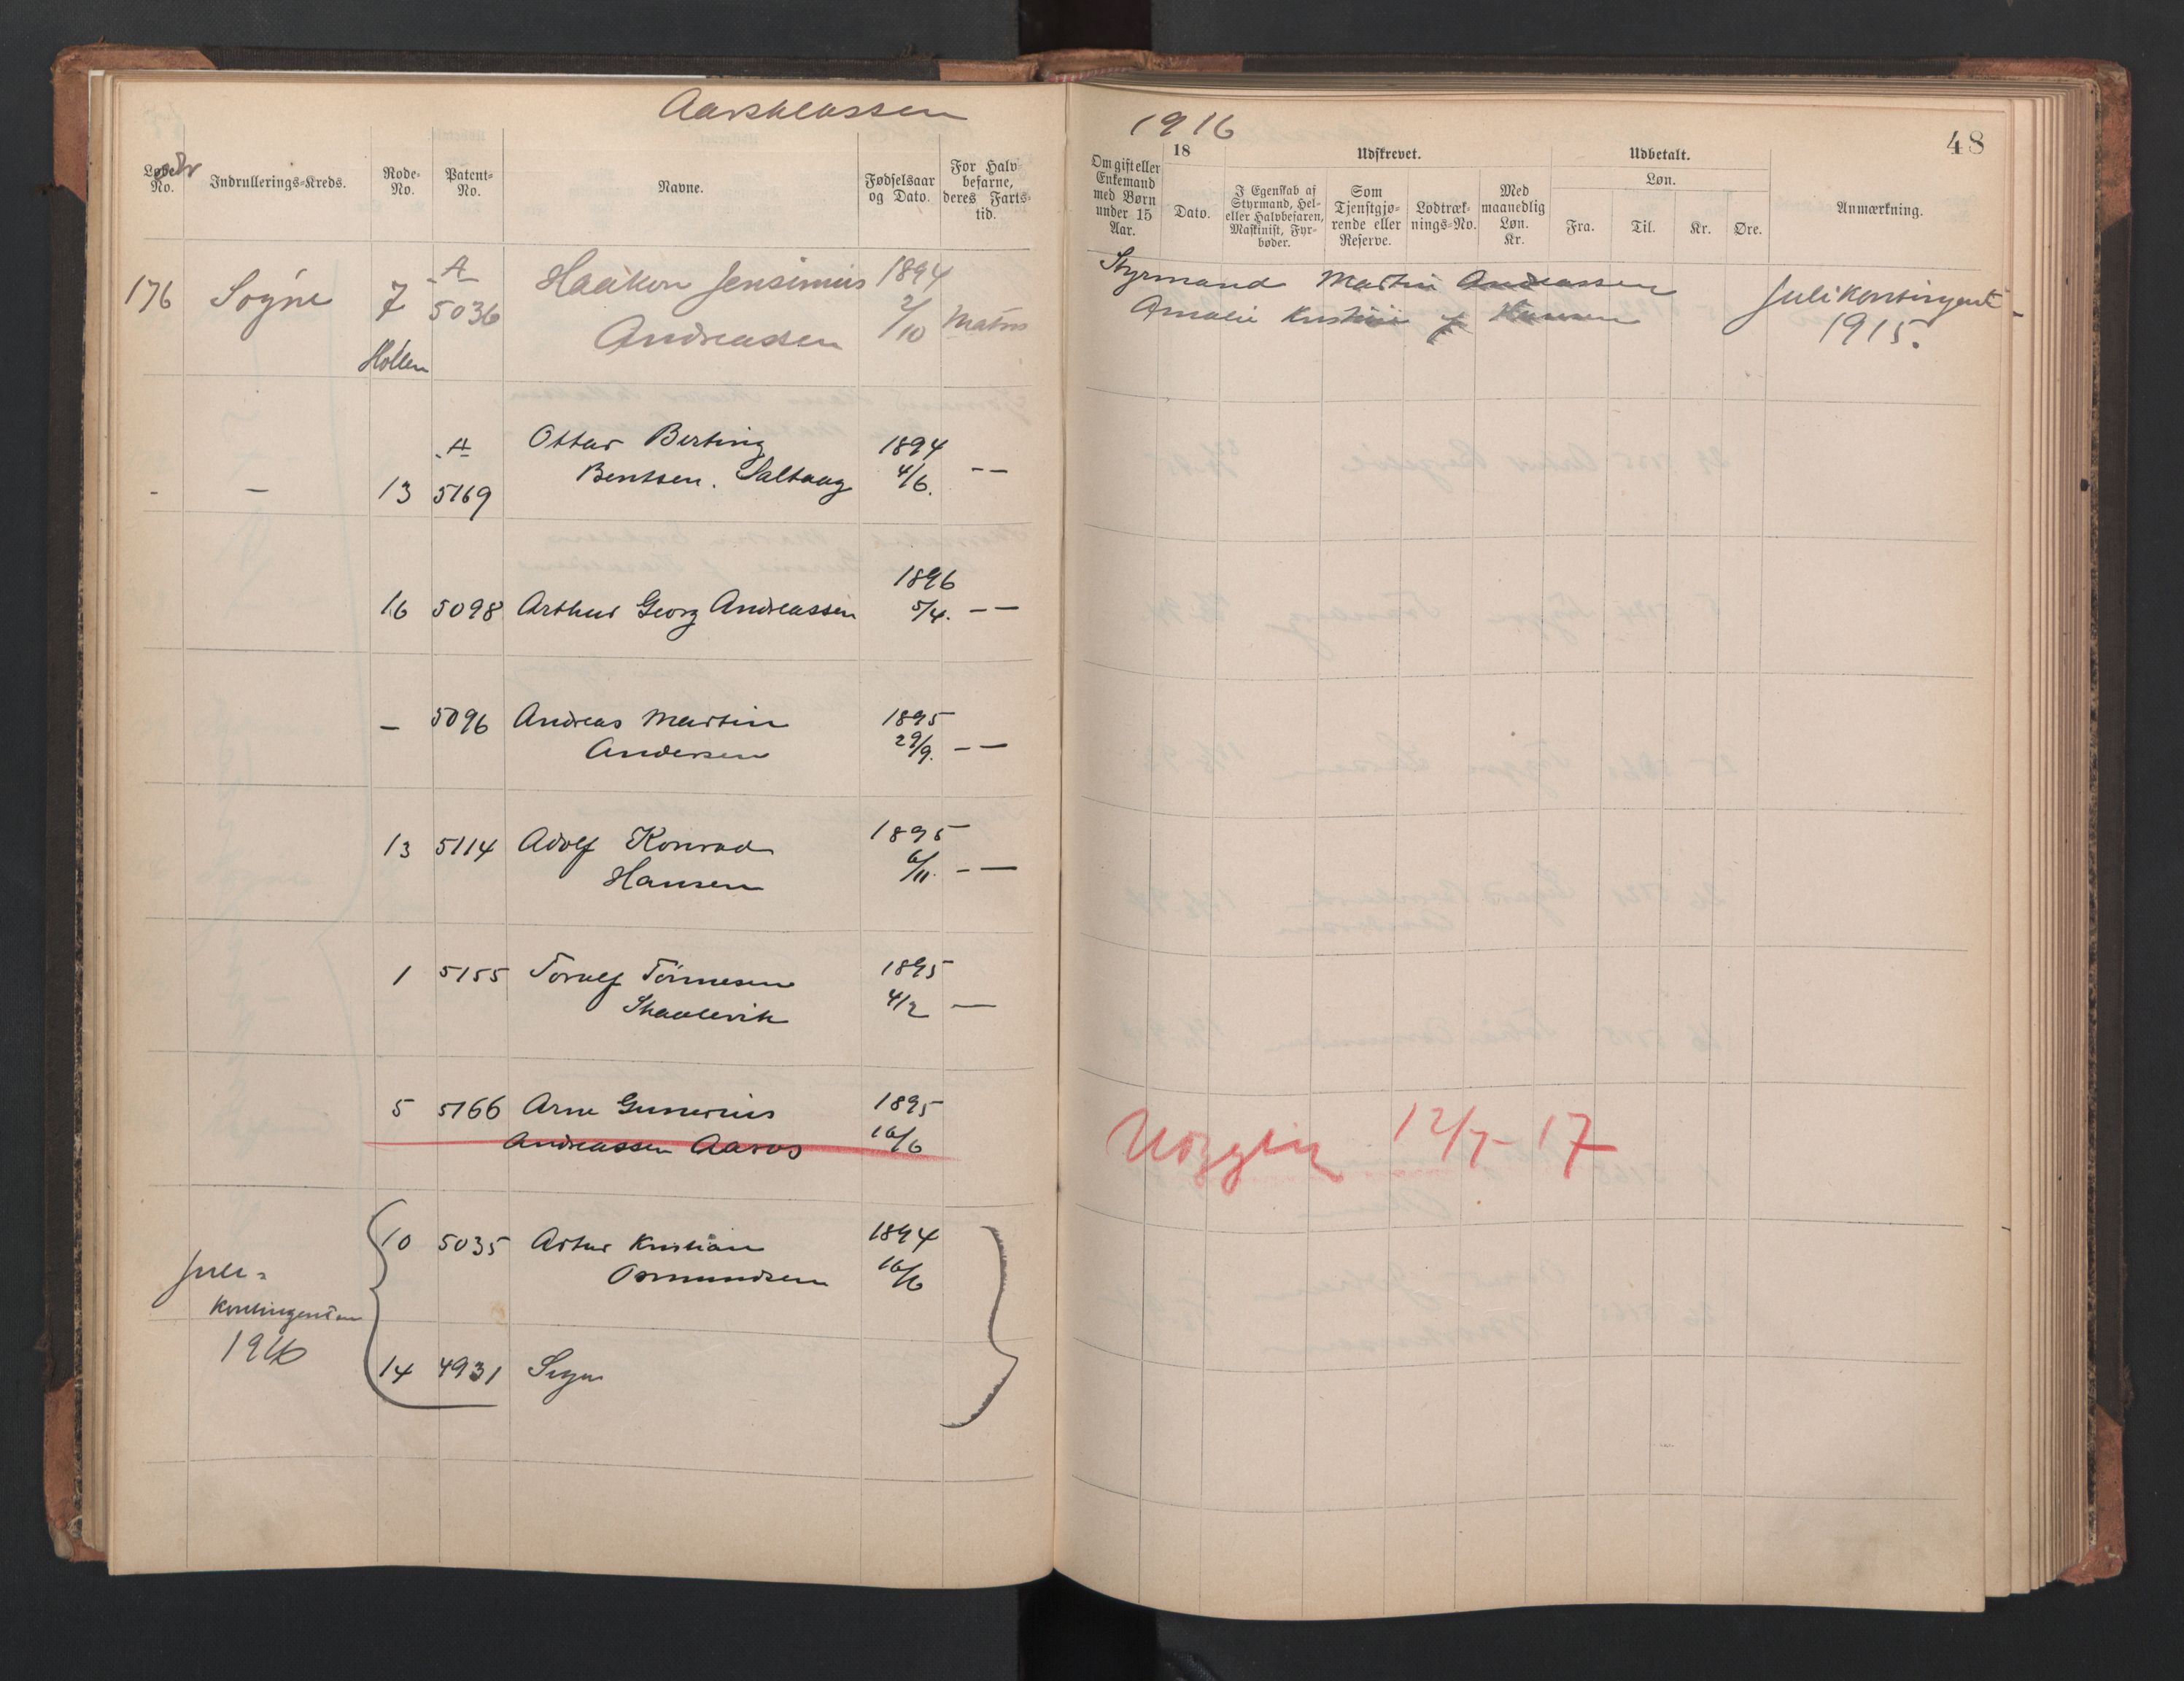 Aarsklassen 1916
48
Løbe-No.
Indrullerings-Kreds.
Rode-No.
Patent-No.
Navne.
Fødselsaar og Dato.
For Halvbefarne, deres Fartstid.
Om gift eller Enkemand med Børn under 15 Aar.
18
Dato.
Udskrevet.
I Egenskab af Styrmand, Hel- eller Halvbefaren, Maskinist, Fyrbøder.
Som Tjenstgjørende eller Reserve.
Lodtræknings-No.
Med maanedlig Løn. Kr.
Udbetalt.
Løn.
Fra.
Til.
Kr.
Øre.
Anmærkning.
176 Søgne 7 A 5036 Haakon Jensinius 1894
Andreassen 2/10 Matros
Høllen
Styrmand Martin Andreassen
Amalie Kristine f Hansen
Julikontingent
1915.
- — 13 A 5169 Ottar Berting 1894
Bentsen. Saltaag 4/6. — —
16 5098 Arthur Georg Andreassen 1896 5/4. — —
— 5096 Andreas Martin 1895
Andersen 29/9. — —
13 5114 Adolf Konrad 1895
Hansen 6/11. — —
1 5155 Torulf Tönnesen 1895
Skaalevik 4/2 —
5 5166 Arne Gunerius 1895
Andreassen Aaros 16/6
12/7-17
Juli-
Kontingenten
1916
10 5035 Artur Kristian 1894
Osmundsen 16/6
14 4931